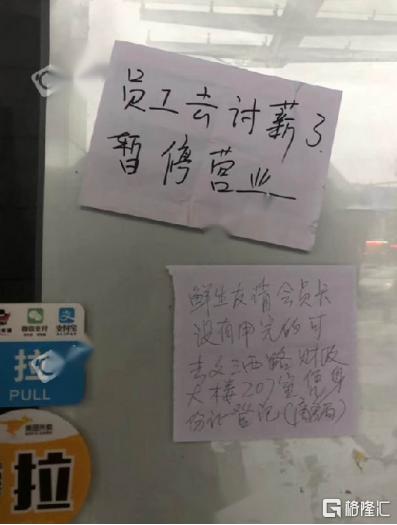 员工去讨薪了
暂停营业
鲜生友请会员卡
没有用完的可
去文三西路财政
大楼207室凭身
份证登记(
微信支付
支付宝
ALIPAY
拉
PULL
美团外卖
拉
格隆汇